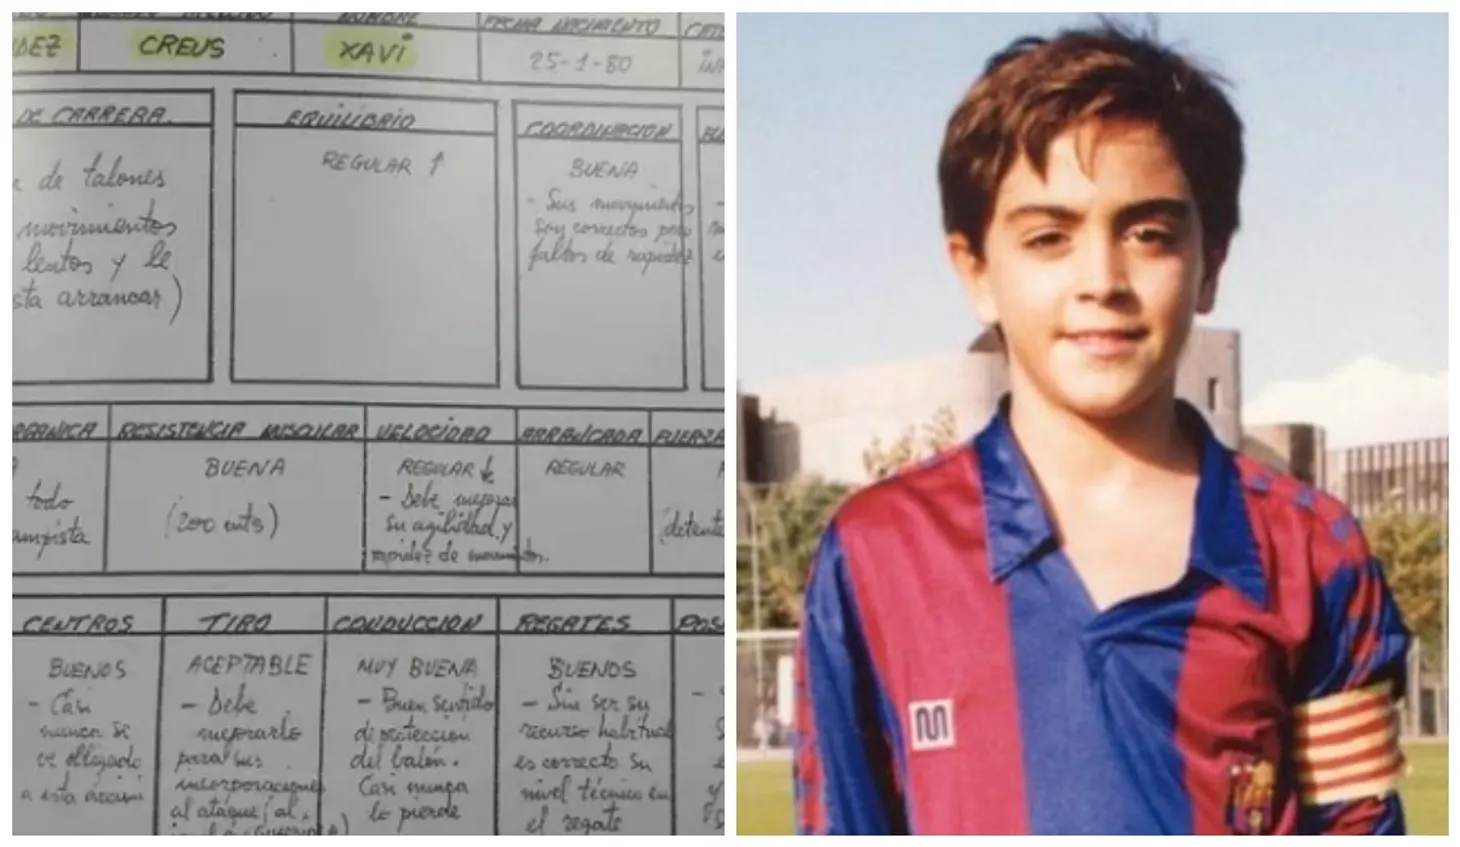 DEZ CREUS XAVI 25-1-80
NOMBRE FECHA NACIMIENTO
DE CARRERA. EQUILIBRIO COORDINACION
de talones
movimientos
lentos y le
sta arrancar)
REGULAR ↑
BUENA
- Sus movimientos
son correctos pero
faltos de rapidez
RESISTENCIA MUSCULAR VELOCIDAD ARRANCADA FUERZA
todo
ampista
BUENA
(200 mts)
REGULAR ↓
- Debe mejorar
su agilidad y
rapidez de movimientos.
REGULAR
(detente
CENTROS TIRO CONDUCCION REGATES POS
BUENOS
- Casi
nunca se
ve obligado
a esta acción
ACEPTABLE
- Debe
mejorarlo
para sus
incorporaciones
al ataque, al
MUY BUENA
- Buen sentido
de protección
del balón.
Casi nunca
lo pierde
BUENOS
- Sin ser su
recurso habitual
es correcto su
nivel técnico en
el regate